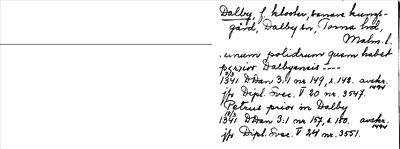 Dalby, f. kloster, senare kungs-
gård, Dalby sn, Torna hd,
Malm. l.
.. unum polidrum quem habet
perior Dalbyensis ----
9/3
1341 DDan 3:1 nr 149, s. 142. avskr.
1494
jfr Dipl. Svec. V 20 nr 3547.
Petrus prior in Dalby
19/3
1341 DDan 3:1 nr 157, s. 150. avskr.
1494
jfr Dipl. Svec. V 24 nr 3551.